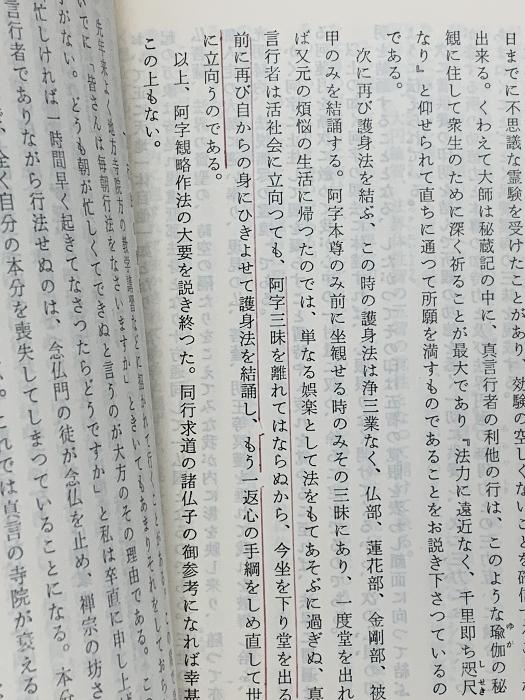 日までに不思議な霊験を受けたことがあり、効験の空しくないことを確信
出来る。くわえて大師は秘蔵記の中に、真言行者の利他の行は、このような瑜伽の秘
ゆが
観に住して衆生のために深く祈ることが最大であり『法力に遠近なく、千里即ち咫尺
しせき
なり』と仰せられて直ちに通つて所願を満すものであることをお説き下さつているの
である。
次に再び護身法を結ぶ、この時の護身法は浄三業なく、仏部、蓮花部、金剛部、被
甲のみを結誦する。阿字本尊のみ前に坐観せる時のみその三昧にあり、一度堂を出れ
ば又元の煩悩の生活に帰つたのでは、単なる娯楽として法をもてあそぶに過ぎぬ、真
言行者は活社会に立向つても、阿字三昧を離れてはならぬから、今坐を下り堂を出る
前に再び自からの身にひきよせて護身法を結誦し、もう一返心の手綱をしめ直して世
に立向うのである。
以上、阿字観略作法の大要を説き終つた。同行求道の諸仏子の御参考になれば幸甚
この上もない。
先年来よく地方寺院方の教学講習などに招かれて行
いでに「皆さんは毎朝行法をなさいますか」ときいてもあまりそれをしておら
がない。どうも朝が忙しくてできぬと言うのが大方のその理由である。こ
忙しければ一時間早く起きてなさつたらどうですか」と私は卒直に申し上
言行者でありながら行法せぬのは、念仏門の徒が念仏を止め、禅宗の坊さ
全く自分の本分を喪失してしまつていることになる。本分
これでは真言の寺院が衰える